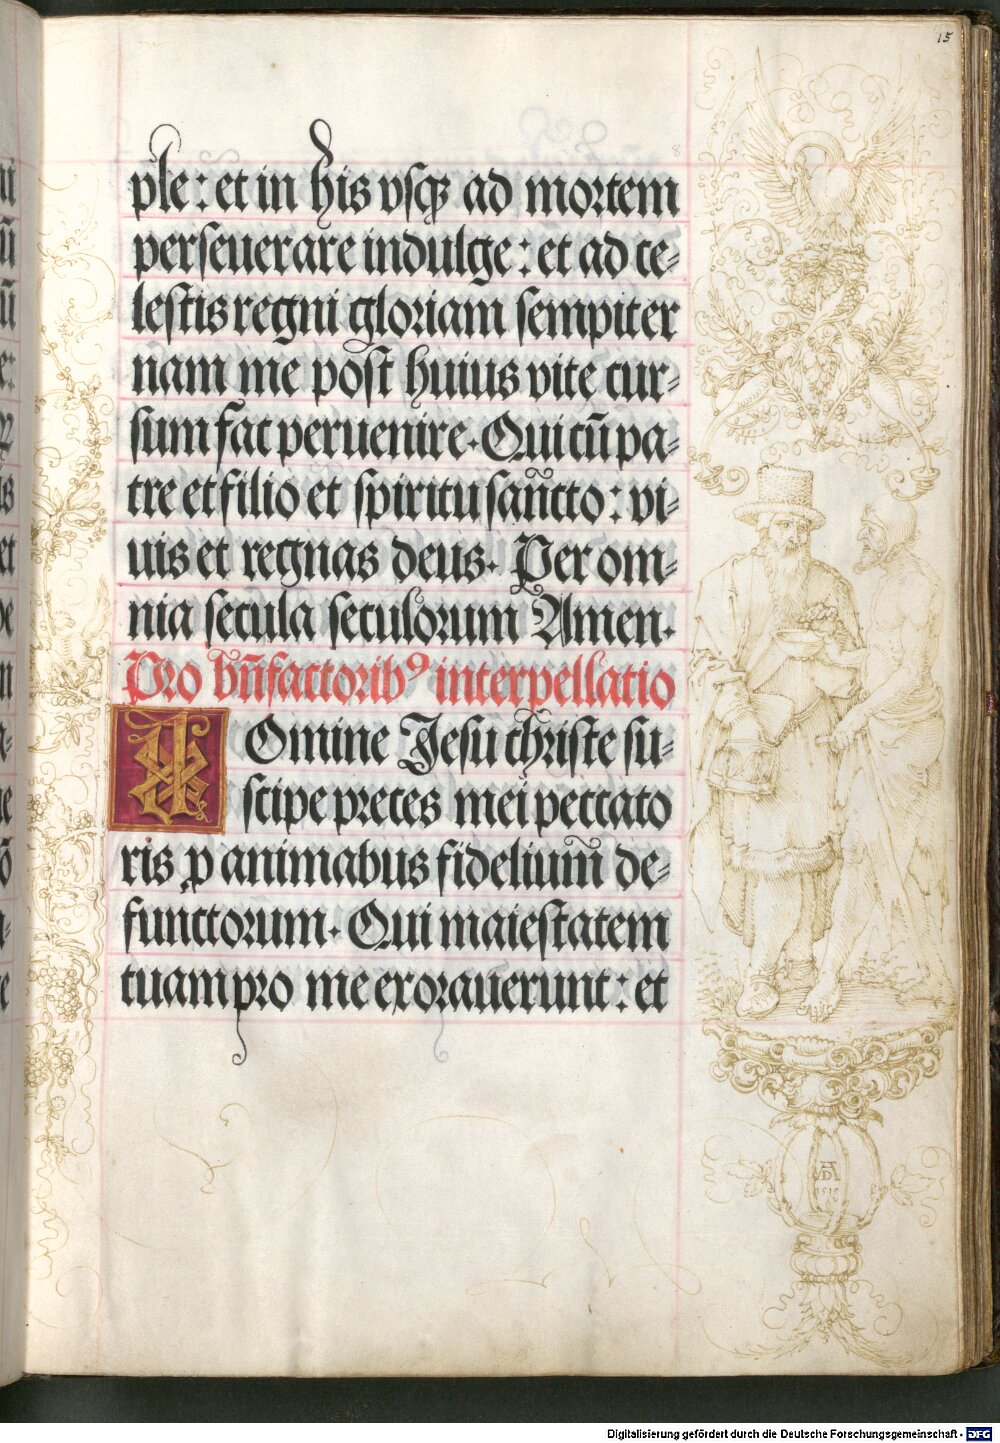 15
ple: et in his vsqꝫ ad mortem
perseuerare indulge: et ad ce-
lestis regni gloriam sempiter
nam me post huius vite cur-
sum fac peruenire. Qui cū pa-
tre et filio et spiritu sancto: vi-
uis et regnas deus. Per om-
nia secula seculorum Amen.
Pro bn̄factoribꝰ interpellatio
Domine Jesu christe su-
scipe preces mei peccato
ris ꝓ animabus fidelium de-
functorum. Qui maiestatem
tuam pro me exorauerunt: et
AD
Digitalisierung gefördert durch die Deutsche Forschungsgemeinschaft - DFG